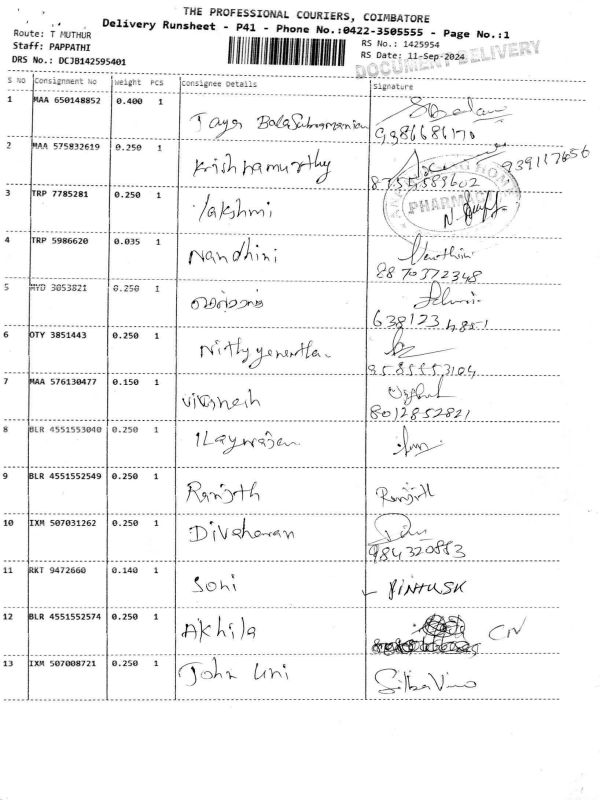 THE PROFESSIONAL COURIERS, COIMBATORE
Delivery Runsheet - P41 - Phone No.:0422-3505555 - Page No.:1
Route: T MUTHUR
Staff: PAPPATHI
DRS No.: DCJB142595401
RS No.: 1425954
RS Date: 11-Sep-2024
DOCUMENT DELIVERY
S NO Consignment No Weight PCS Consignee Details Signature
1 MAA 650148852 0.400 1 Jaya BalaSubramanian
9386686170
2 MAA 575832619 0.250 1 Krishnamurthy 939117656
8755589602
3 TRP 7785281 0.250 1 Lakshmi
PHARMACY
4 TRP 5986620 0.035 1 Nandhini
8870372348
5 HYD 3053821 0.250 1
6381234851
6 OTY 3851443 0.250 1
8585553104
7 MAA 576130477 0.150 1 Vignesh
8012852821
8 BLR 4551553040 0.250 1
9 BLR 4551552549 0.250 1 Ranjith Ranjith
10 IXM 507031262 0.250 1 Divaharan
984320883
11 RKT 9472660 0.140 1 Soni PINTUSK
12 BLR 4551552574 0.250 1 Akhila
13 IXM 507008721 0.250 1 John